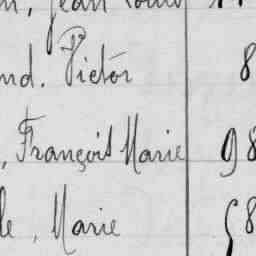 n, Jean Louis
nd. Victor 8
, François Marie 98
le, Marie 58